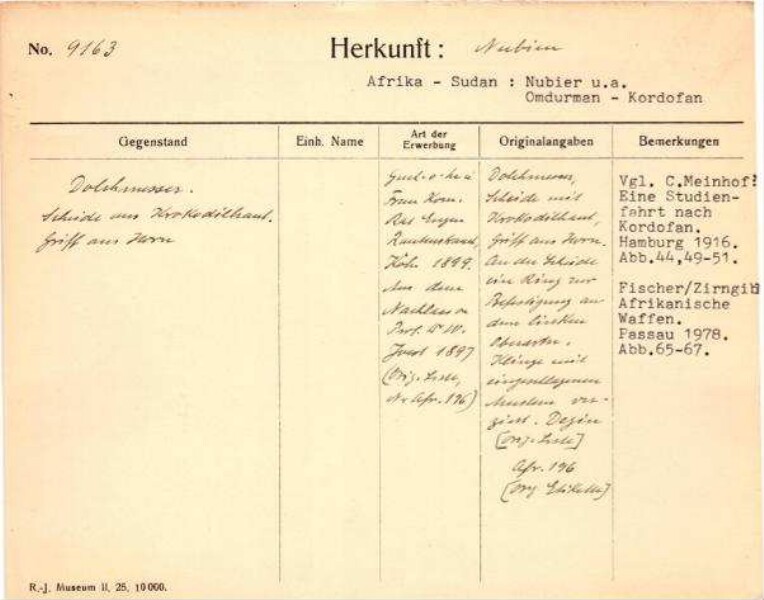 No. 9163 Herkunft: Nubien
Afrika - Sudan : Nubier u.a.
Omdurman - Kordofan
Gegenstand
Einh. Name
Art der
Erwerbung
Originalangaben
Bemerkungen
Dolchmesser.
Scheide aus Krokodilhaut.
Griff aus Horn
Frau Kom.
Rat Eugen
Rautenstrauch,
Köln 1899.
Aus dem
Nachlass v.
Prof. Dr W.
Joest 1897
(Orig. Liste,
Nr Afr. 196)
Dolchmesser,
Scheide mit
Krokodilhaut,
Griff aus Horn.
An der Scheide
ein Ring zur
Befestigung an
dem linken
Oberarm.
Klinge mit
eingeschlagenen
Mustern ver-
ziert.
[Orig. Liste]
Afr. 196
[Orig. Etikette]
Vgl. C.Meinhof:
Eine Studien-
fahrt nach
Kordofan.
Hamburg 1916.
Abb.44,49-51.
Fischer/Zirngibl
Afrikanische
Waffen.
Passau 1978.
Abb.65-67.
R.-J. Museum II, 25, 10000.